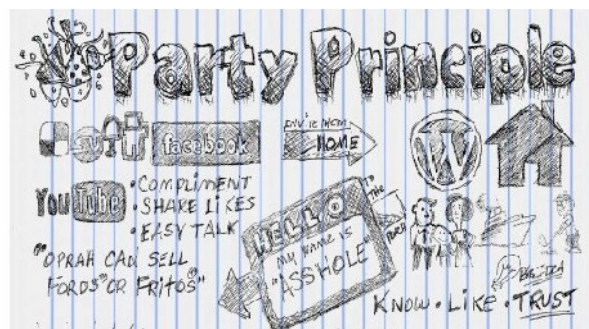 Party Principle
facebook
INVITE THEM
HOME
W
YouTube
• COMPLIMENT
• SHARE LIKES
• EASY TALK
"OPRAH CAN SELL
FORDS OR FRITOS"
HELLO
MY NAME IS
"ASSHOLE"
To The
KNOW • LIKE • TRUST